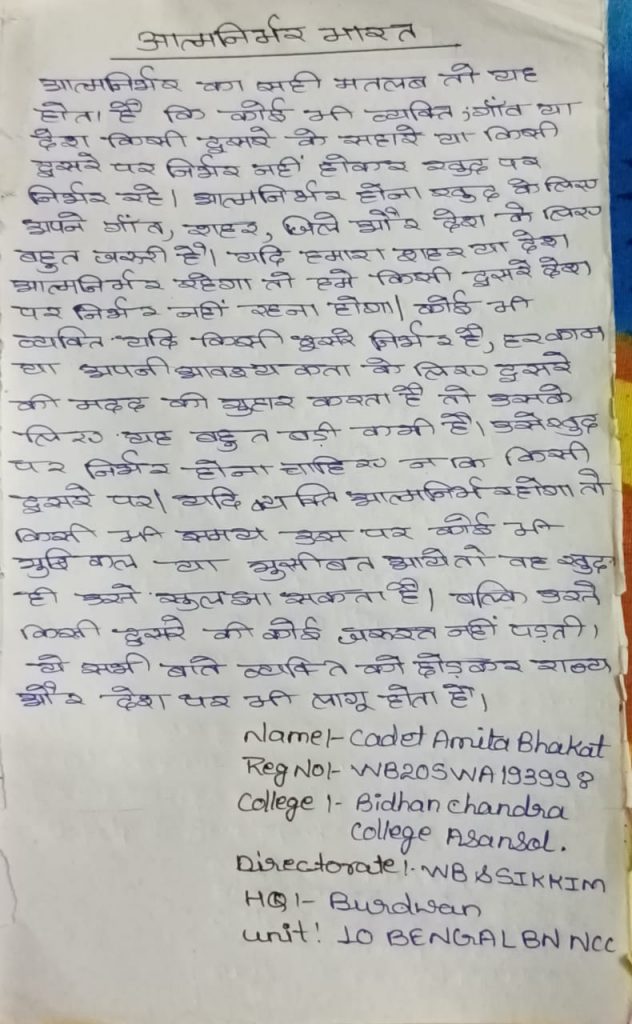 आत्मनिर्भर भारत
आत्मनिर्भर का सही मतलब तो यह
होता है कि कोई भी व्यक्ति, गाँव या
देश किसी दुसरे के सहारे या किसी
दुसरे पर निर्भर नहीं होकर खुद पर
निर्भर रहे। आत्मनिर्भर होना खुद के लिए
अपने गाँव, शहर, जिले और देश के लिए
बहुत जरुरी है। यदि हमारा शहर या देश
आत्मनिर्भर रहेगा तो हमे किसी दुसरे देश
पर निर्भर नहीं रहना होगा। कोई भी
व्यक्ति यदि किसी दुसरे निर्भर है, हर काम
या अपनी आवश्यकता के लिए दुसरे
की मदद की गुहार करता है तो उसके
लिए यह बहुत बड़ी कमी है। उसे खुद
पर निर्भर होना चाहिए न कि किसी
दुसरे पर। यदि व्यक्ति आत्मनिर्भर होगा तो
किसी भी समय उस पर कोई भी
मुश्किल या मुसीबत आये तो वह खुद
ही उसे सुलझा सकता है। बल्कि उसे
किसी दुसरे की कोई जरुरत नहीं पड़ती।
ये सभी बाते व्यक्ति को छोड़कर राज्य
और देश पर भी लागू होता है।
Name:- Cadet Amita Bhakat
Reg No:- WB20SWA193998
College :- Bidhan chandra
College Asansol.
Directorate:- WB & SIKKIM
HQ:- Burdwan
Unit: 10 BENGAL BN NCC